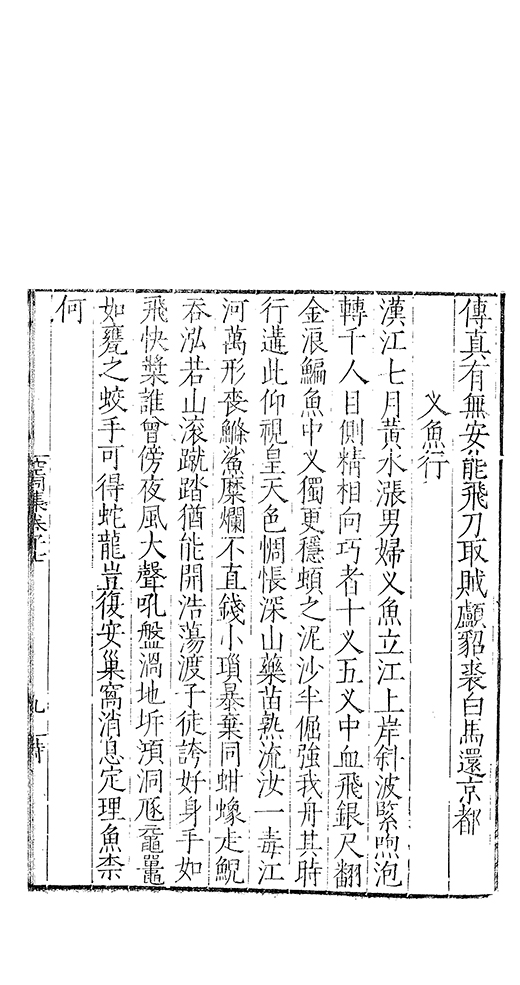 傳真有無安能飛刀取賊顱貂裘白馬還京都
义魚行
漢江七月黃水漲男婦义魚立江上岸斜波緊煦泡
轉千人目側精相向巧者十义五义中血飛銀尺翻
金浪鯿魚中义獨更穩頓之泥沙半倔強我舟其時
行遘此仰視皇天色惆悵深山藥苗熟流汝一毒江
河萬形喪鰷鯊糜爛不直錢小瑣暴棄同蚶蟓走鯢
吞泓若山滚蹴踏猶能開浩蕩渡子徒誇好身手如
飛快槳誰曾傍夜風大聲吼盤渦地坼澒洞豗黿鼉
如甕之蛟手可得蛇龍豈復安巢窩消息定理魚柰
何
空同集卷十七
九 詩